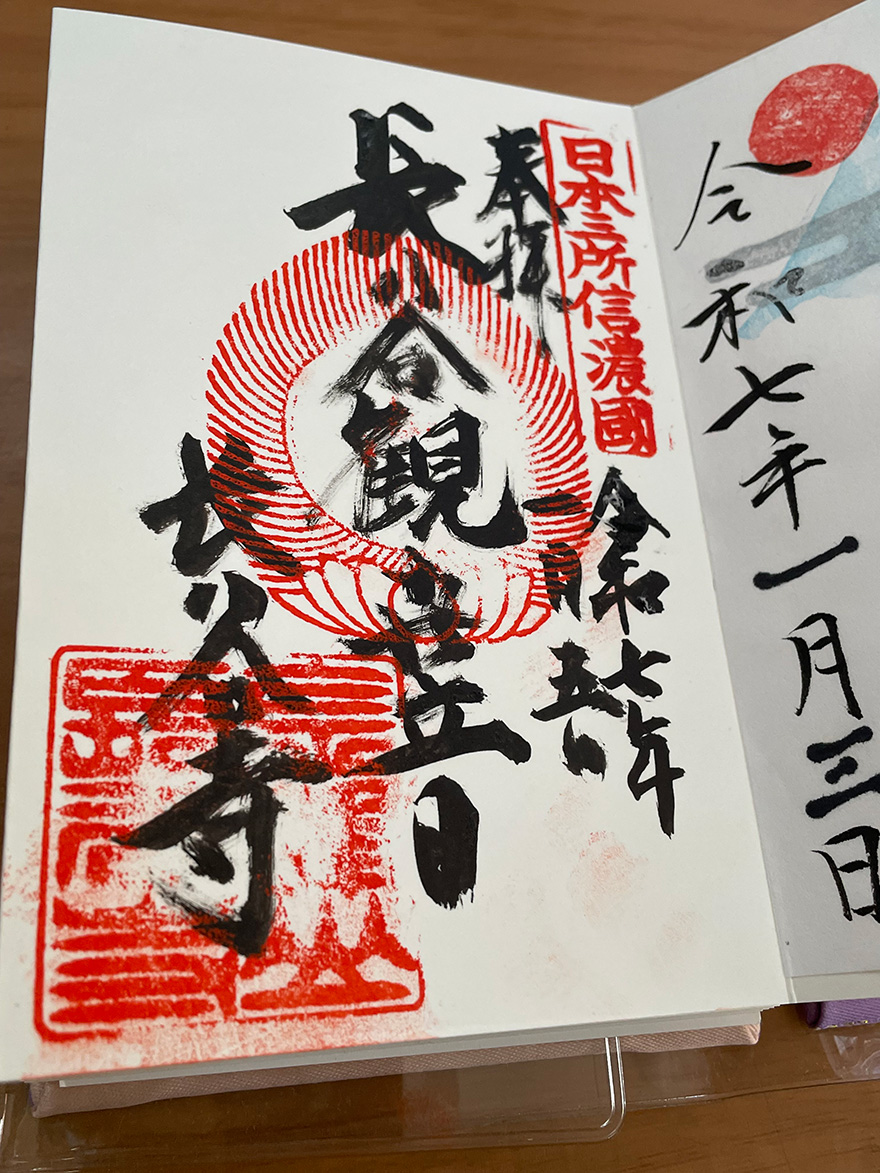 令和七年一月三日
日本三所信濃國
奉拝
令和七年
一月五日
長谷観世音
長谷寺